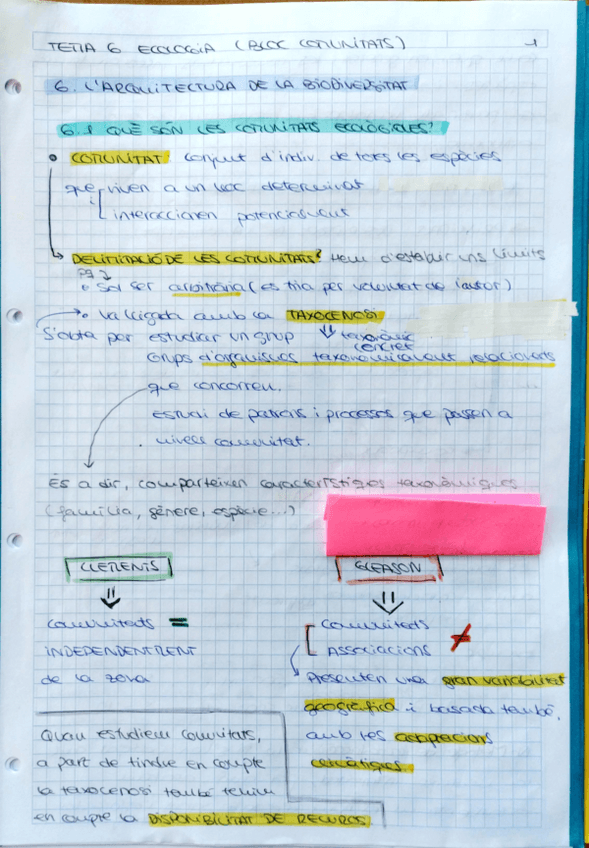 TEMA 6. ECOLOGIA (BLOC COMUNITATS) 1
6. L'ARQUITECTURA DE LA BIODIVERSITAT
6.1 QUÈ SÓN LES COMUNITATS ECOLÒGIQUES?
COMUNITAT conjunt d'indiv. de totes les espècies
que viuen a un lloc determinat
i interaccionen potencialment
DELIMITACIÓ DE LES COMUNITATS? Hem d'establir uns límits
Sol ser arbitrària (es tria per voluntat de l'autor)
Va lligada amb la TAXOCENOSI
S'opta per estudiar un grup taxonòmic
concret
Grups d'organismes taxonòmicament relacionats
que concorren.
Estudi de patrons i processos que passen a
nivell comunitat.
És a dir, comparteixen característiques taxonòmiques
(família, gènere, espècie...)
CLEMENTS
GLEASON
Comunitats =
INDEPENDENTMENT
de la zona
Comunitats
Associacions ≠
Presenten una gran variabilitat
geogràfica i basada també,
amb les adaptacions
climàtiques.
Quan estudiem comunitats,
a part de tindre en compte
la taxocenosi també tenim
en compte la DISPONIBILITAT DE RECURSOS